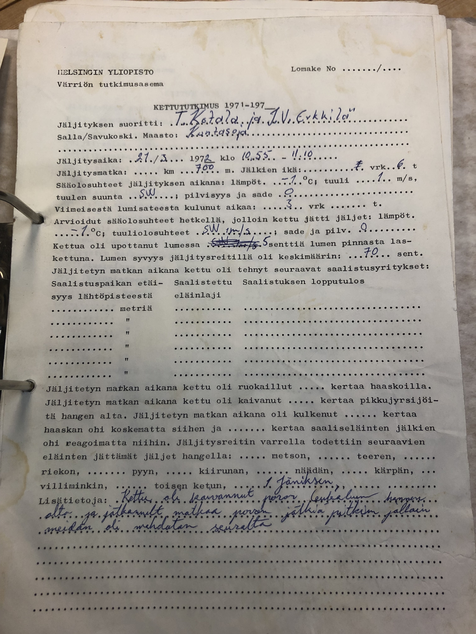 HELSINGIN YLIOPISTO
Lomake No ......./....
Värriön tutkimusasema
KETTUTUTKIMUS 1971-197
Jäljityksen suoritti: T. Kotala ja J.V. Erkkilä
Salla/Savukoski. Maasto: Kuotasoja
Jäljitysaika: 21/3 1972 klo 10.55 - 11.10
Jäljitysmatka: ..... km 700 m. Jälkien ikä: vrk. 6. t
Sääolosuhteet jäljityksen aikana: lämpöt. -1 °C; tuuli 1 m/s,
tuulen suunta SW; pilvisyys ja sade 0
Viimeisestä lumisateesta kulunut aikaa: 3 vrk ....... t.
Arvioidut sääolosuhteet hetkellä, jolloin kettu jätti jäljet: lämpöt.
-1 °C; tuuliolosuhteet SW m/s; sade ja pilv. 0
Kettua oli upottanut lumessa senttiä lumen pinnasta las-
kettuna. Lumen syvyys jäljitysreitillä oli keskimäärin: 70 sent.
Jäljitetyn matkan aikana kettu oli tehnyt seuraavat saalistusyritykset:
Saalistuspaikan etäi- Saalistettu Saalistuksen lopputulos
syys lähtöpisteestä eläinlaji
........... metriä
........... "
........... "
........... "
........... "
........... "
Jäljitetyn matkan aikana kettu oli ruokaillut ..... kertaa haaskoilla.
Jäljitetyn matkan aikana kettu oli kaivanut ..... kertaa pikkujyrsijöi-
tä hangen alta. Jäljitetyn matkan aikana oli kulkenut ...... kertaa
haaskan ohi koskematta siihen ja ....... kertaa saaliseläinten jälkien
ohi reagoimatta niihin. Jäljitysreitin varrella todettiin seuraavien
eläinten jättämät jäljet hangella: ..... metson, ..... teeren, .....
riekon, ....... pyyn, ..... kiirunan, ..... näädän, ..... kärpän, ...
villiminkin, ..... toisen ketun, 1 Jäniksen,
Lisätietoja: Kettu oli kaavannut poron
alta ja jatkanut matkaa poron jälkiä pitkin jolloin
meidän oli mahdoton seurata